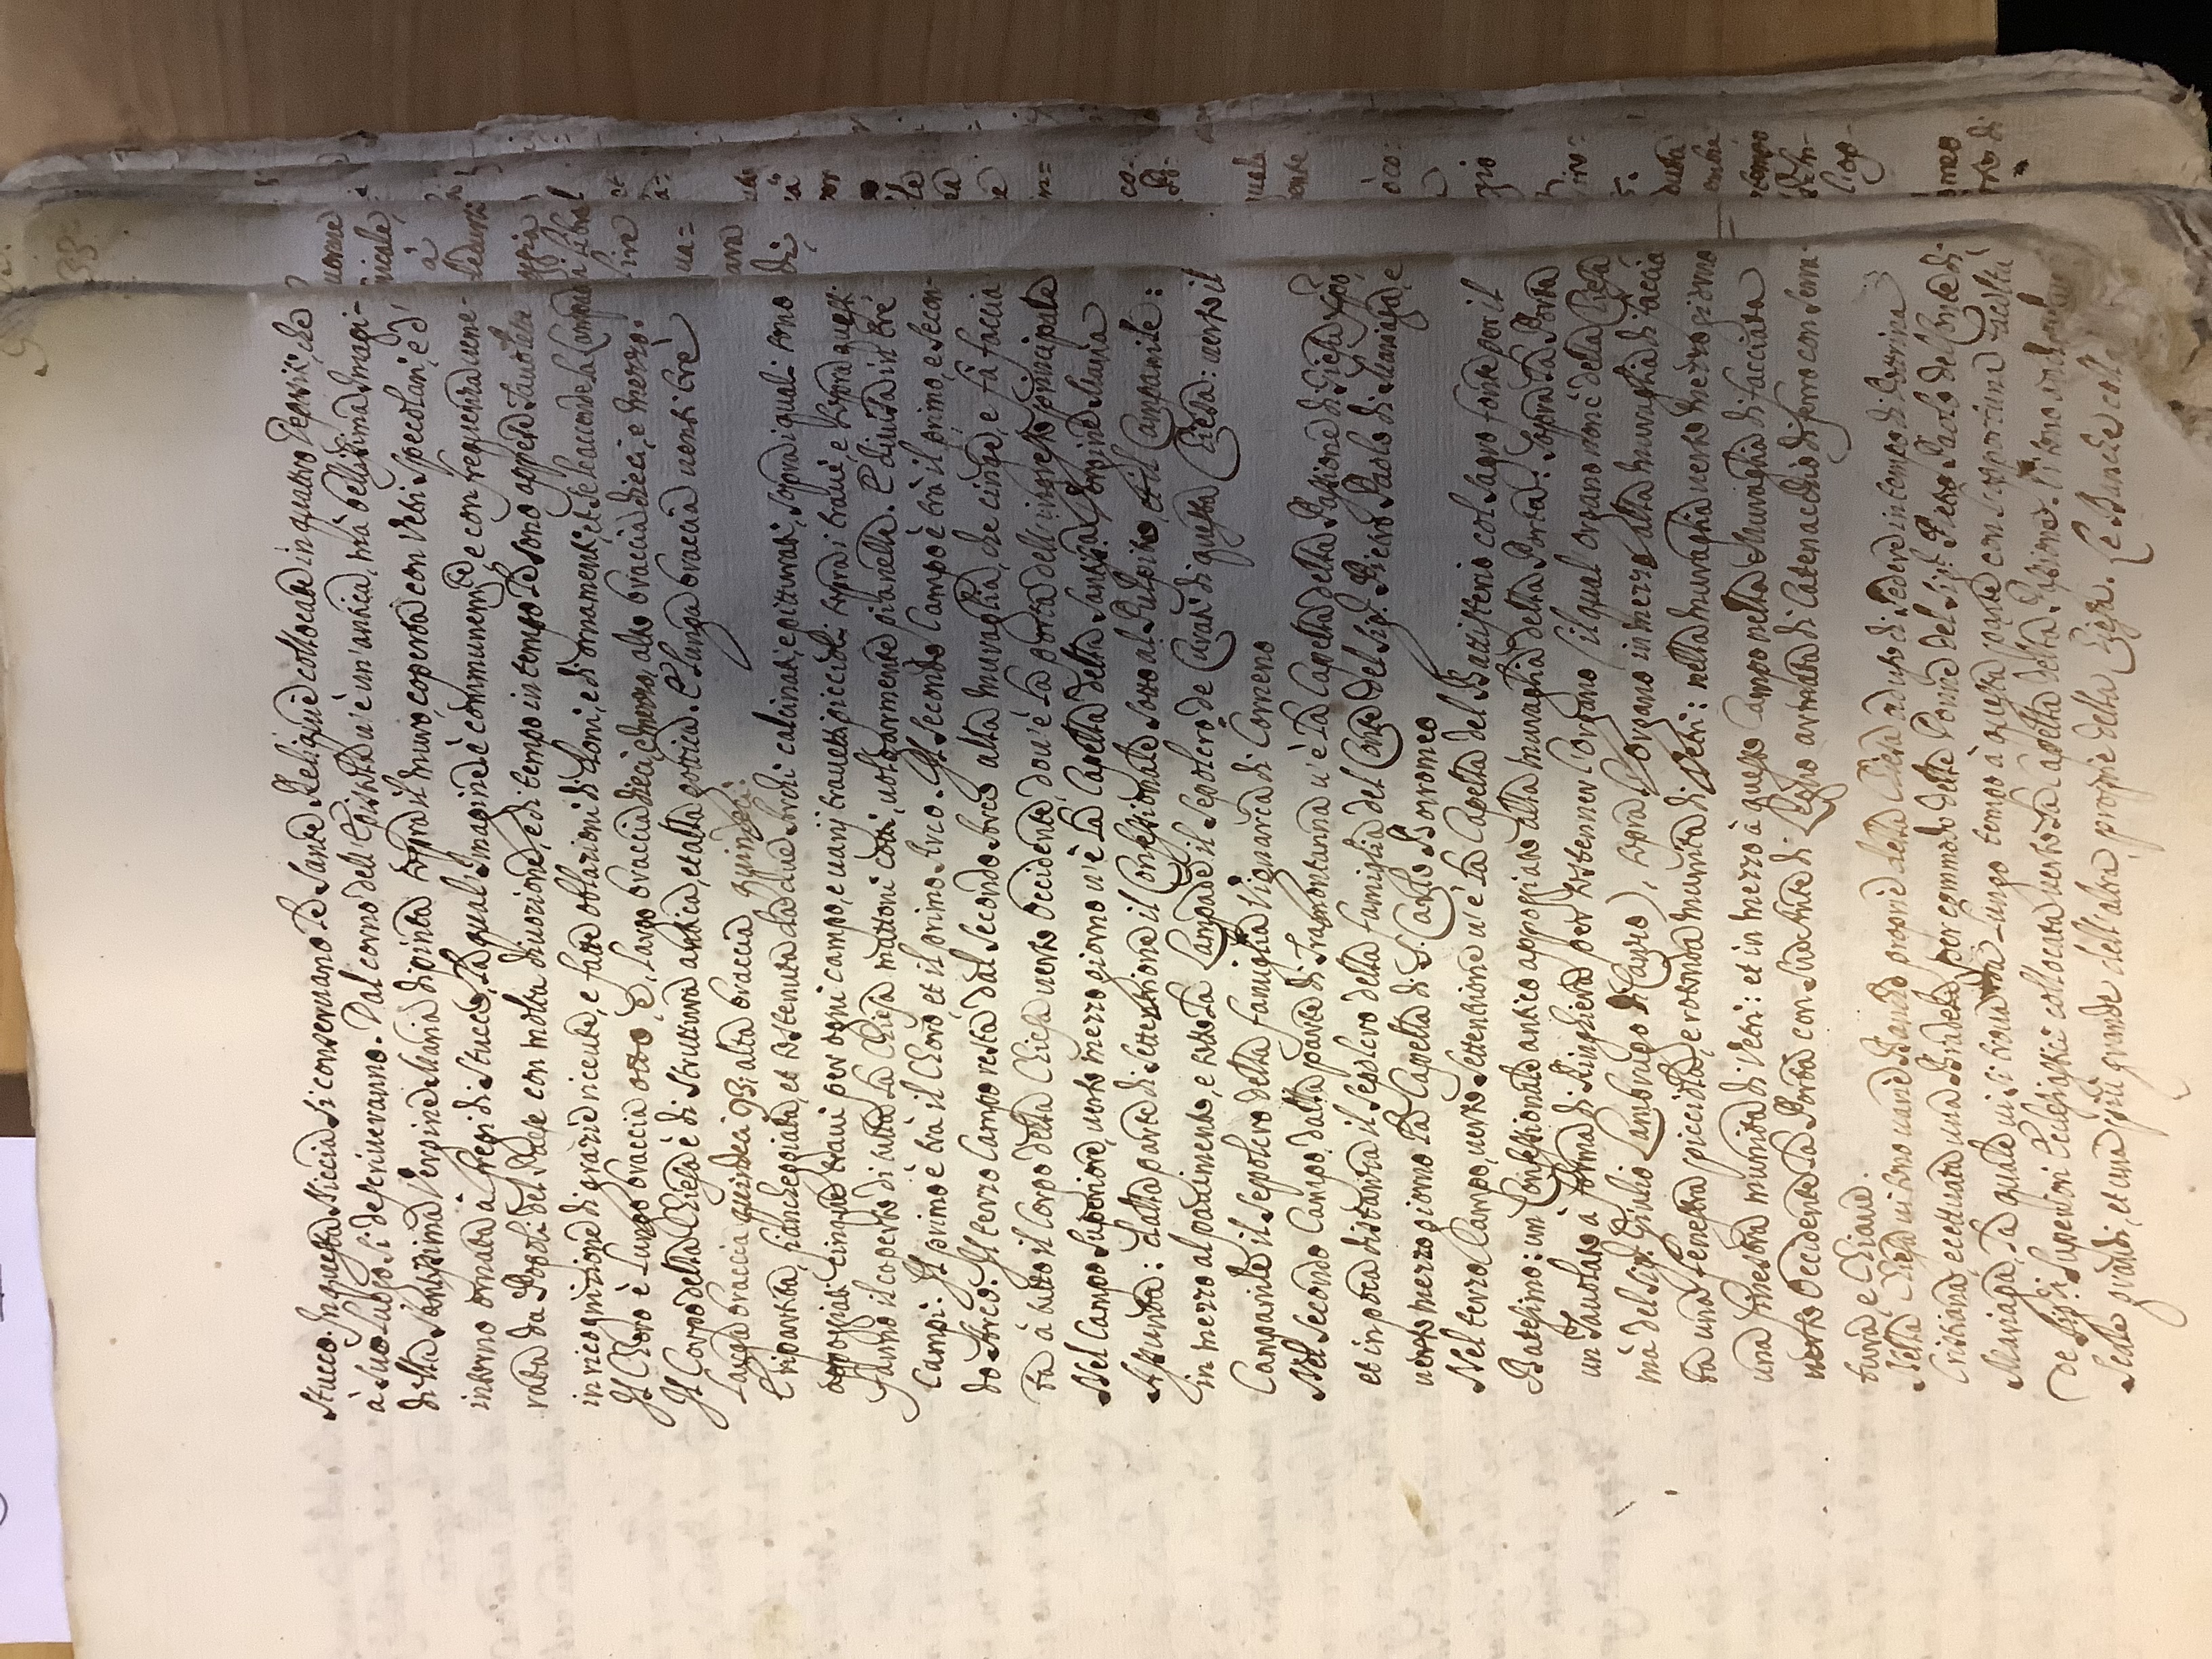 stucco. In questa Niccia si conservano le Sante Reliquie collocate in quattro Depositi, che
à suo luogo si descriveranno. Dal corno dell'Epistola v'è un'antica, mà bellissima Imagi-
della Santissima Vergine Maria dipinta sopra il muro coperta con Vetri speccolari, e d'
intorno ornata à fregi di stucco, la qual Imagine è communemente e con frequenza vene-
rata da Popoli del Paese con molta divozione, e di tempo in tempo le sono appese Tavolette
in ricognizione di grazie ricevute, e fatte obblazioni di doni, e di ornamenti, et se le accende la Lampada
Il Choro è lungo braccia otto e, largo braccia dieci e mezzo, alto braccia dieci, e mezzo.
Il Corpo della Chiesa è di struttura antica, et alla gottica. È lunga braccia venti tre
larga braccia quindeci alta braccia quindeci.
È ripartita, fiancheggiata, et sostenuta da due Archi calcinati, e pitturati, sopra di quali sono
appoggiati cinque travi per ogni campo, e varij travetti piccioli sopra i travi, e sopra questi
fanno il coperto di tutta la Chiesa mattoni cotti, volgarmente pianelle. È divisa in tre
Campi. Il primo è trà il Choro, et il primo Arco. Il secondo Campo è trà il primo, e secon-
do Arco. Il terzo Campo resta dal secondo Arco alla muraglia, che cinge, e fà faccia
ta à tutto il Corpo della Chiesa verso Occidente, dov'è la porta dell'ingresso principale
Nel Campo Superiore, verso mezzo giorno v'è la Capella della Santissima Vergine Maria
Assunta: dalla parte di settentrione il Confessionale sotto al Pulpito, et il Campanile:
in mezzo al pavimento, e sotto la Lampade il Sepolcro de Curati di questa Chiesa: verso il
Campanile il Sepolcro della famiglia Vignarca di Corneno
Nel secondo Campo, dalla parte di Tramontanna v'è la Capella della Passione di Giesù Xpo,
et in poca distanza il Sepolcro della famiglia del Conte del Sig. Pietro Paolo di Mariaga, e
verso mezzo giorno la Capella di S. Carlo Borromeo
Nel terzo Campo, verso settentrione v'è la Capella del Battisterio col Sagro fonte per il
Batesimo: un Confessionale antico appoggiato alla muraglia della Porta: sopra la Porta
un Tavolato à forma di Ringhiera per sostenner l'organo (il qual organo non è della Chiesa,
mà del Sig. Giulio Lambrugo di Canzo), sopra l'organo in mezzo alla muraglia di faccia
ta una fenestra picciola, e rotonda munita di Vetri: nella muraglia verso mezzo giorno
una finestra munita di Vetri: et in mezzo à questo Campo nella muraglia di facciata
verso Occidente la Porta con sue Ante di Legno armata di Catenaccio di ferro con serra-
tura, e Chiave.
Nella Chiesa vi sono varie Banche proprie della Chiesa ad uso di sedere in tempo di Dottrina
Cristiana, eccettuata una Bradella per commodo delle Donne del Sig. Pietro Paolo del Conte di
Mariaga, la quale ivi si trova da lungo tempo à questa parte con l'oppertuna facoltà
de Sig.ri Superiori Ecclesiastici collocata verso la Capella della Passione. Vi sono
Sedie grandi, et una più grande dell'altre, proprie della Chiesa. Le Banche